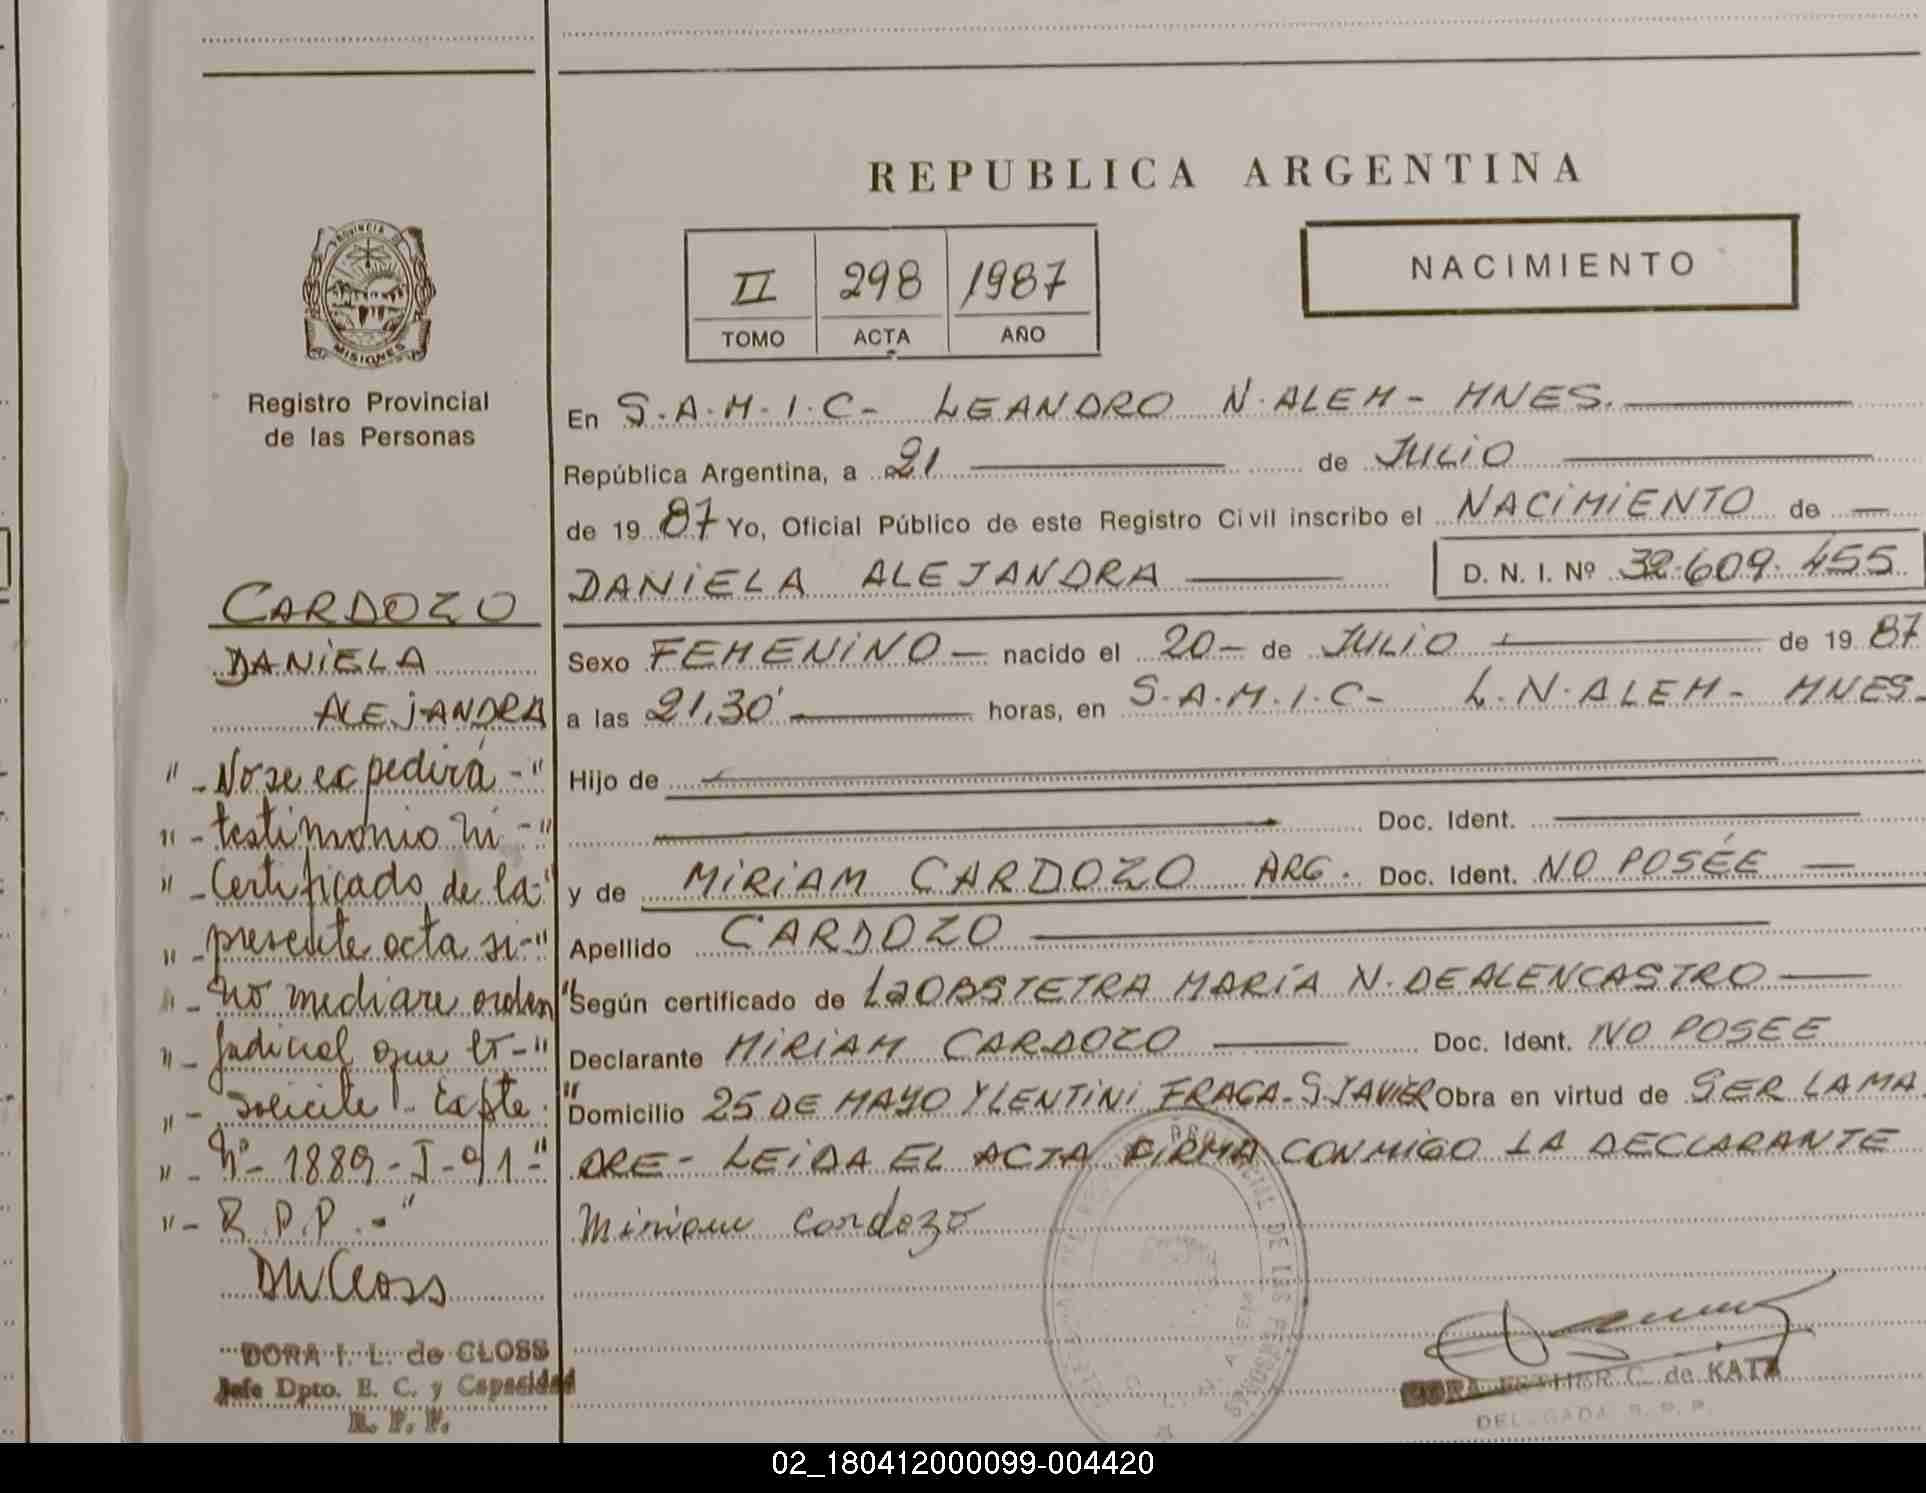 REPUBLICA ARGENTINA
PROVINCIA DE
MISIONES
Registro Provincial
de las Personas
II 298 1987
TOMO ACTA AÑO
NACIMIENTO
En S.A.M.I.C- LEANDRO N.ALEM- MNES.
República Argentina, a 21 de JULIO
de 19 87 Yo, Oficial Público de este Registro Civil inscribo el NACIMIENTO de
DANIELA ALEJANDRA D. N. I. Nº 32.609.455
Sexo FEMENINO nacido el 20 de JULIO de 19 87
a las 21,30' horas, en S.A.M.I.C- L.N.ALEM- MNES-
Hijo de
Doc. Ident.
y de MIRIAM CARDOZO ARG. Doc. Ident. NO POSÉE
Apellido CARDOZO
Según certificado de LA OBSTETRA MARÍA N. DEALENCASTRO
Declarante MIRIAM CARDOZO Doc. Ident. NO POSEE
Domicilio 25 DE MAYO Y LENTINI FRAGA-S.JAVIER Obra en virtud de SER LA MA
DRE- LEIDA EL ACTA FIRMA CONMIGO LA DECLARANTE
Miriam Cardozo
CARDOZO
DANIELA
ALEJANDRA
"-No se expedirá-"
"-testimonio ni-"
"-Certificado de la-"
"-presente acta si-"
"-no mediare orden"
"-Judicial que lo-"
"-solicite!- Expte."
"-Nº- 1889-I-91-"
"-R.P.P.-"
DORA I. L. de CLOSS
Jefe Dpto. E. C. y Capacidad
R. P. P.
ESTHER C. de KATZ
DELEGADA R. P. P.
02_180412000099-004420